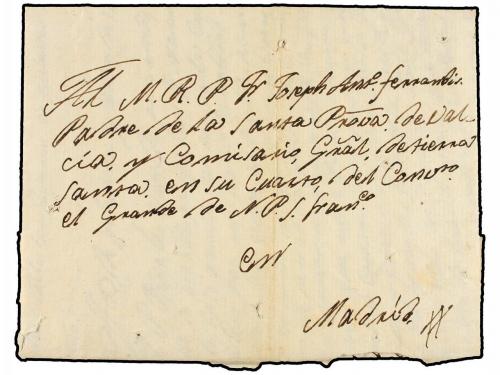 Al M. R. P. Fr. Joseph Ant.º ferrandis.
Padre de la Santa Prov.a de Val-
cia, y Comisario, Grãl, de tierra
Santa, en su Cuarto, del Conv.to
el Grande de N. P. S. fran.co
en
Madrid.